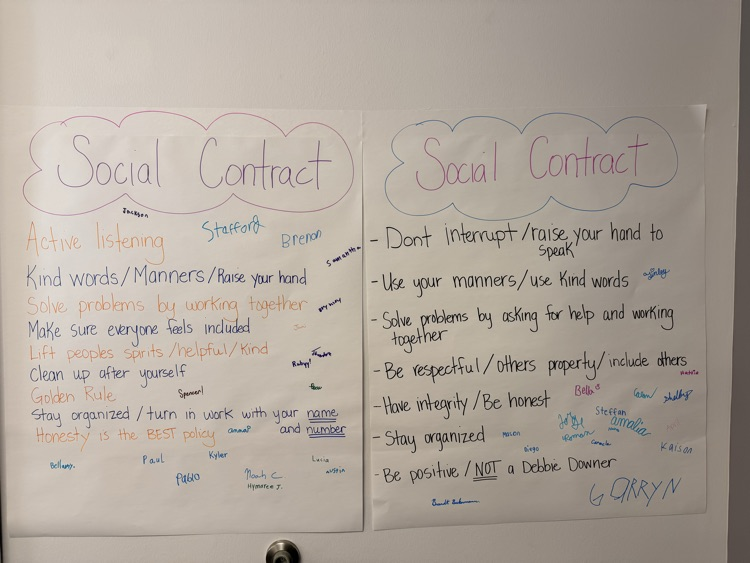 Social Contract
Jackson
Stafford
Active listening
Brenon
Samantha
Kind words/Manners/Raise your hand
Solve problems by working together
Make sure everyone feels included
Lift peoples sprits/helpful/kind
Clean up after yourself
Golden Rule
Spencer!
Stay organized/turn in work with your name
and number
Honesty is the BEST policy
Bellamy.
Paul
Kyler
Lucia
Pablo
Noah C
austin
Hymoree J.
Social Contract
- Dont interrupt/raise your hand to
speak
- Use your manners/use kind words
- Solve problems by asking for help and working
together
- Be respectful/others property/include others
Bella
- Have integrity/Be honest
Shelby
Steffan
amalia
- Stay organized
Mason
Roman
Camila
Diego
Kaison
- Be positive/NOT a Debbie Downer
GARRYN